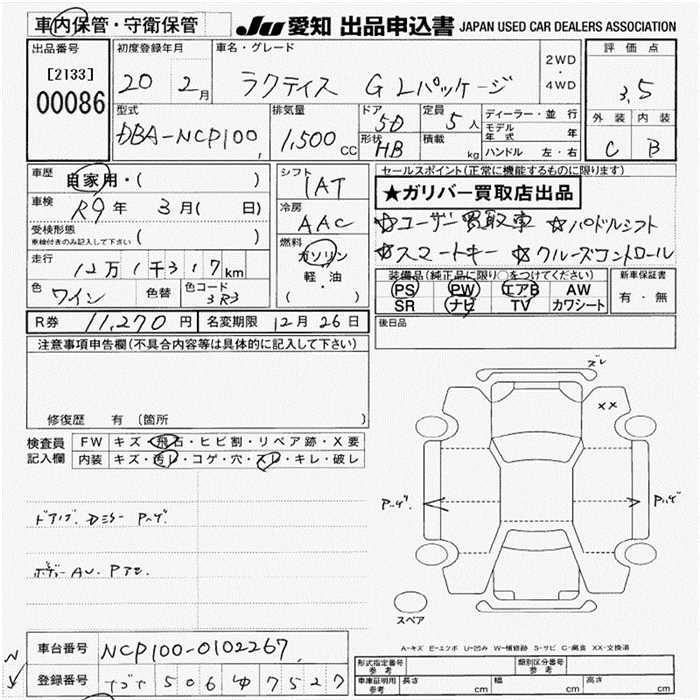 車内保管・守衛保管
JU 愛知 出品申込書 JAPAN USED CAR DEALERS ASSOCIATION
出品番号
[2133]
00086
初度登録年月
20 2月
車名・グレード
ラクティス G Lパッケージ
2WD
・
4WD
評価点
3.5
外装 内装
C B
型式
DBA-NCP100
排気量
1,500cc
ドア
5D
形状
HB
定員
5人
積載
kg
ディーラー・並行
モデル年式 年
ハンドル 左・右
車歴
自家用・( )
車検
R9年 3月( 日)
受検形態
車検付きのみ記入して下さい ( )
走行
12万1千317km
色
ワイン
色替
色コード
3R3
シフト
IAT
冷房
AAC
燃料
ガソリン
軽・油
( )
セールスポイント(正常に機能するものに限ります)
★ガリバー買取店出品
☆ユーザー買取車 ☆パドルシフト
☆スマートキー ☆クルーズコントロール
装備品(純正品に限り○をつけてください)
PS PW エアB AW
SR ナビ TV カワシート
新車保証書
有・無
R券 11,270円 名変期限 12月26日
後日品
注意事項申告欄(不具合内容等は具体的に記入して下さい)
修復歴 有 (箇所 )
検査員
記入欄
FW キズ・飛石・ヒビ割・リペア跡・X要
内装 キズ・汚レ・コゲ・穴・スレ・キレ・破レ
ズレ
XX
スペア
A-キズ E-エクボ U-凹み W-補修跡 S-サビ C-腐食 XX-交換済
車台番号 NCP100-0102267
登録番号
506
7527
形式指定番号
参考
類別区分番号
参考
車庫証明用
参考
長さ cm
幅 cm
高さ cm